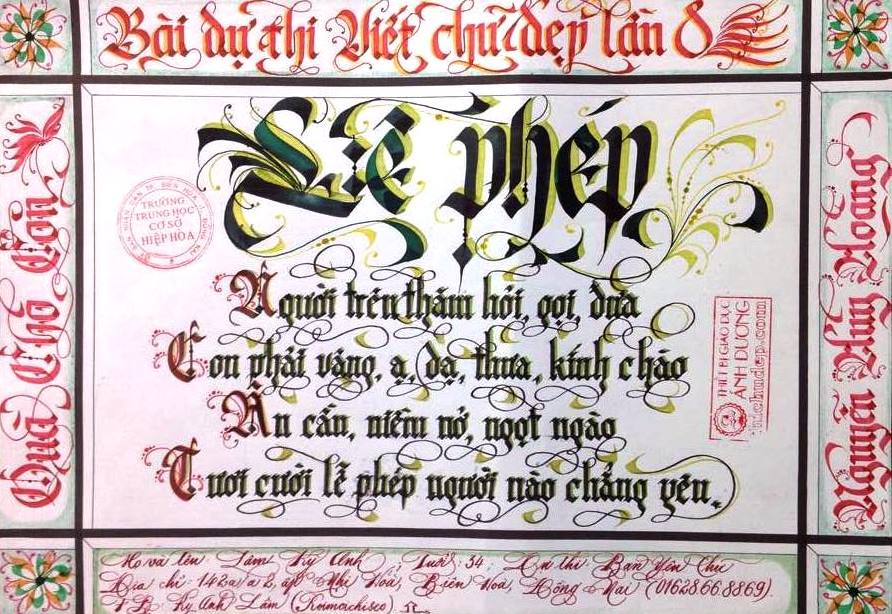 Bài dự thi Viết chữ đẹp lần 8
Quà Cho Con
Lễ phép
TRƯỜNG
TRUNG HỌC
CƠ SỞ
HIỆP HÒA
Người trên thăm hỏi, gọi, đưa
Con phải vâng, ạ, dạ, thưa, kính chào
Ân cần, niềm nở, ngọt ngào
Tươi cười lễ phép người nào chẳng yêu.
THIẾT BỊ GIÁO DỤC
ÁNH DƯƠNG
luchudep.com
Nguyễn Huy Hoàng
Họ và tên: Lâm Kỳ Anh, Tuổi: 34,
Địa chỉ: 142a/a2, ấp Nhị Hoà, Biên Hoà, Đồng Nai (01628.66.8869).
FB Kỳ Anh Lâm